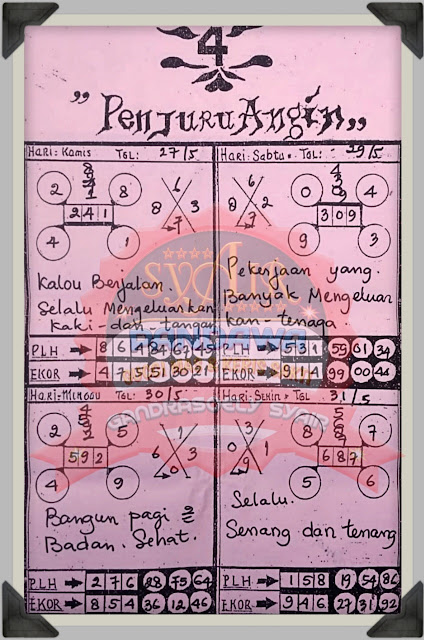 4
"PenJuruAngin"
Hari: Kamis TGL: 27/5
2 8
241
4 1
6
8 3
7
Kalou Berjalan.
Selalu Mengeluarkan
kaki-dan-tangan
PLH → 8 6 4 84 67 45
EKOR → 4 7 5 51 30 21
Hari: Sabtu. TGL: 29/5
0 4
309
9 3
6
8 2
7
Pekerjaan yang.
Banyak Mengeluar
kan-tenaga
PLH → 5 3 1 59 61 34
EKOR → 9 1 4 99 00 44
Hari: Minggu TGL: 30/5
2 5
592
4 9
1
6 3
0
Bangun pagi
Badan. Sehat.
PLH → 2 7 6 28 75 64
EKOR → 8 5 4 36 12 46
Hari: Senin TGL: 31/5
8 7
687
5 6
3
9 1
0
Selalu.
Senang dan tenang
PLH → 1 5 8 19 54 86
EKOR → 9 4 6 27 31 92
SYAIR
PANDAWA
SANDRASGELY SYAIR